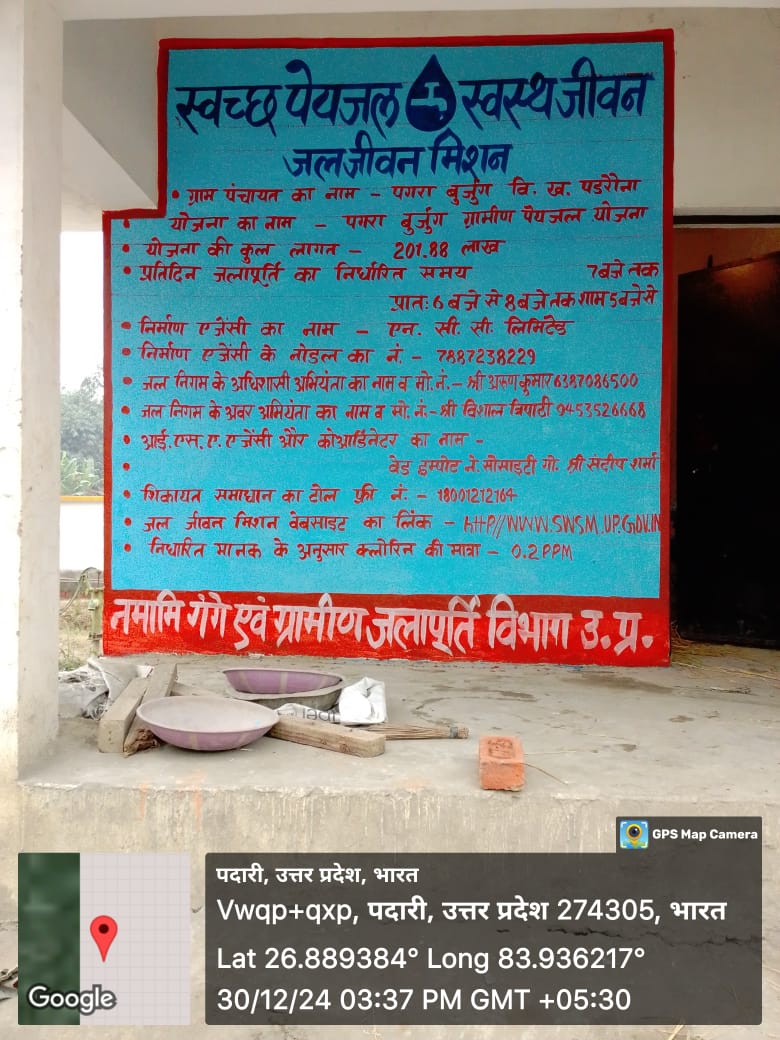 स्वच्छ पेयजल स्वस्थ जीवन
जल जीवन मिशन
• ग्राम पंचायत का नाम - पगरा बुर्जुग वि. ख. पडरौना
• योजना का नाम - पगरा बुर्जुग ग्रामीण पेयजल योजना
• योजना की कुल लागत - 201.88 लाख
• प्रतिदिन जलापूर्ति का निर्धारित समय 7 बजे तक
प्रात: 6 बजे से 8 बजे तक शाम 5 बजे से
• निर्माण एजेंसी का नाम - एन. सी. सी. लिमिटेड
• निर्माण एजेंसी के नोडल का नं. - 7887238229
• जल निगम के अधिशासी अभियंता का नाम व मो. नं. - श्री अरुण कुमार 6387086500
• जल निगम के अवर अभियंता का नाम व मो. नं. - श्री विशाल त्रिपाठी 9453526668
• आई. एस. ए. एजेंसी और कोआर्डिनेटर का नाम -
• वेड इम्पोट ने. सोसाइटी गो. श्री संदीप शर्मा
• शिकायत समाधान का टोल फ्री नं. - 18001212164
• जल जीवन मिशन वेबसाइट का लिंक - HTTP//WWW.SWSM.UP.GOV.IN
• निर्धारित मानक के अनुसार क्लोरिन की मात्रा - 0.2 PPM
नमामि गंगे एवं ग्रामीण जलापूर्ति विभाग उ. प्र.
GPS Map Camera
पदारी, उत्तर प्रदेश, भारत
Vwqp+qxp, पदारी, उत्तर प्रदेश 274305, भारत
Lat 26.889384° Long 83.936217°
30/12/24 03:37 PM GMT +05:30
Google